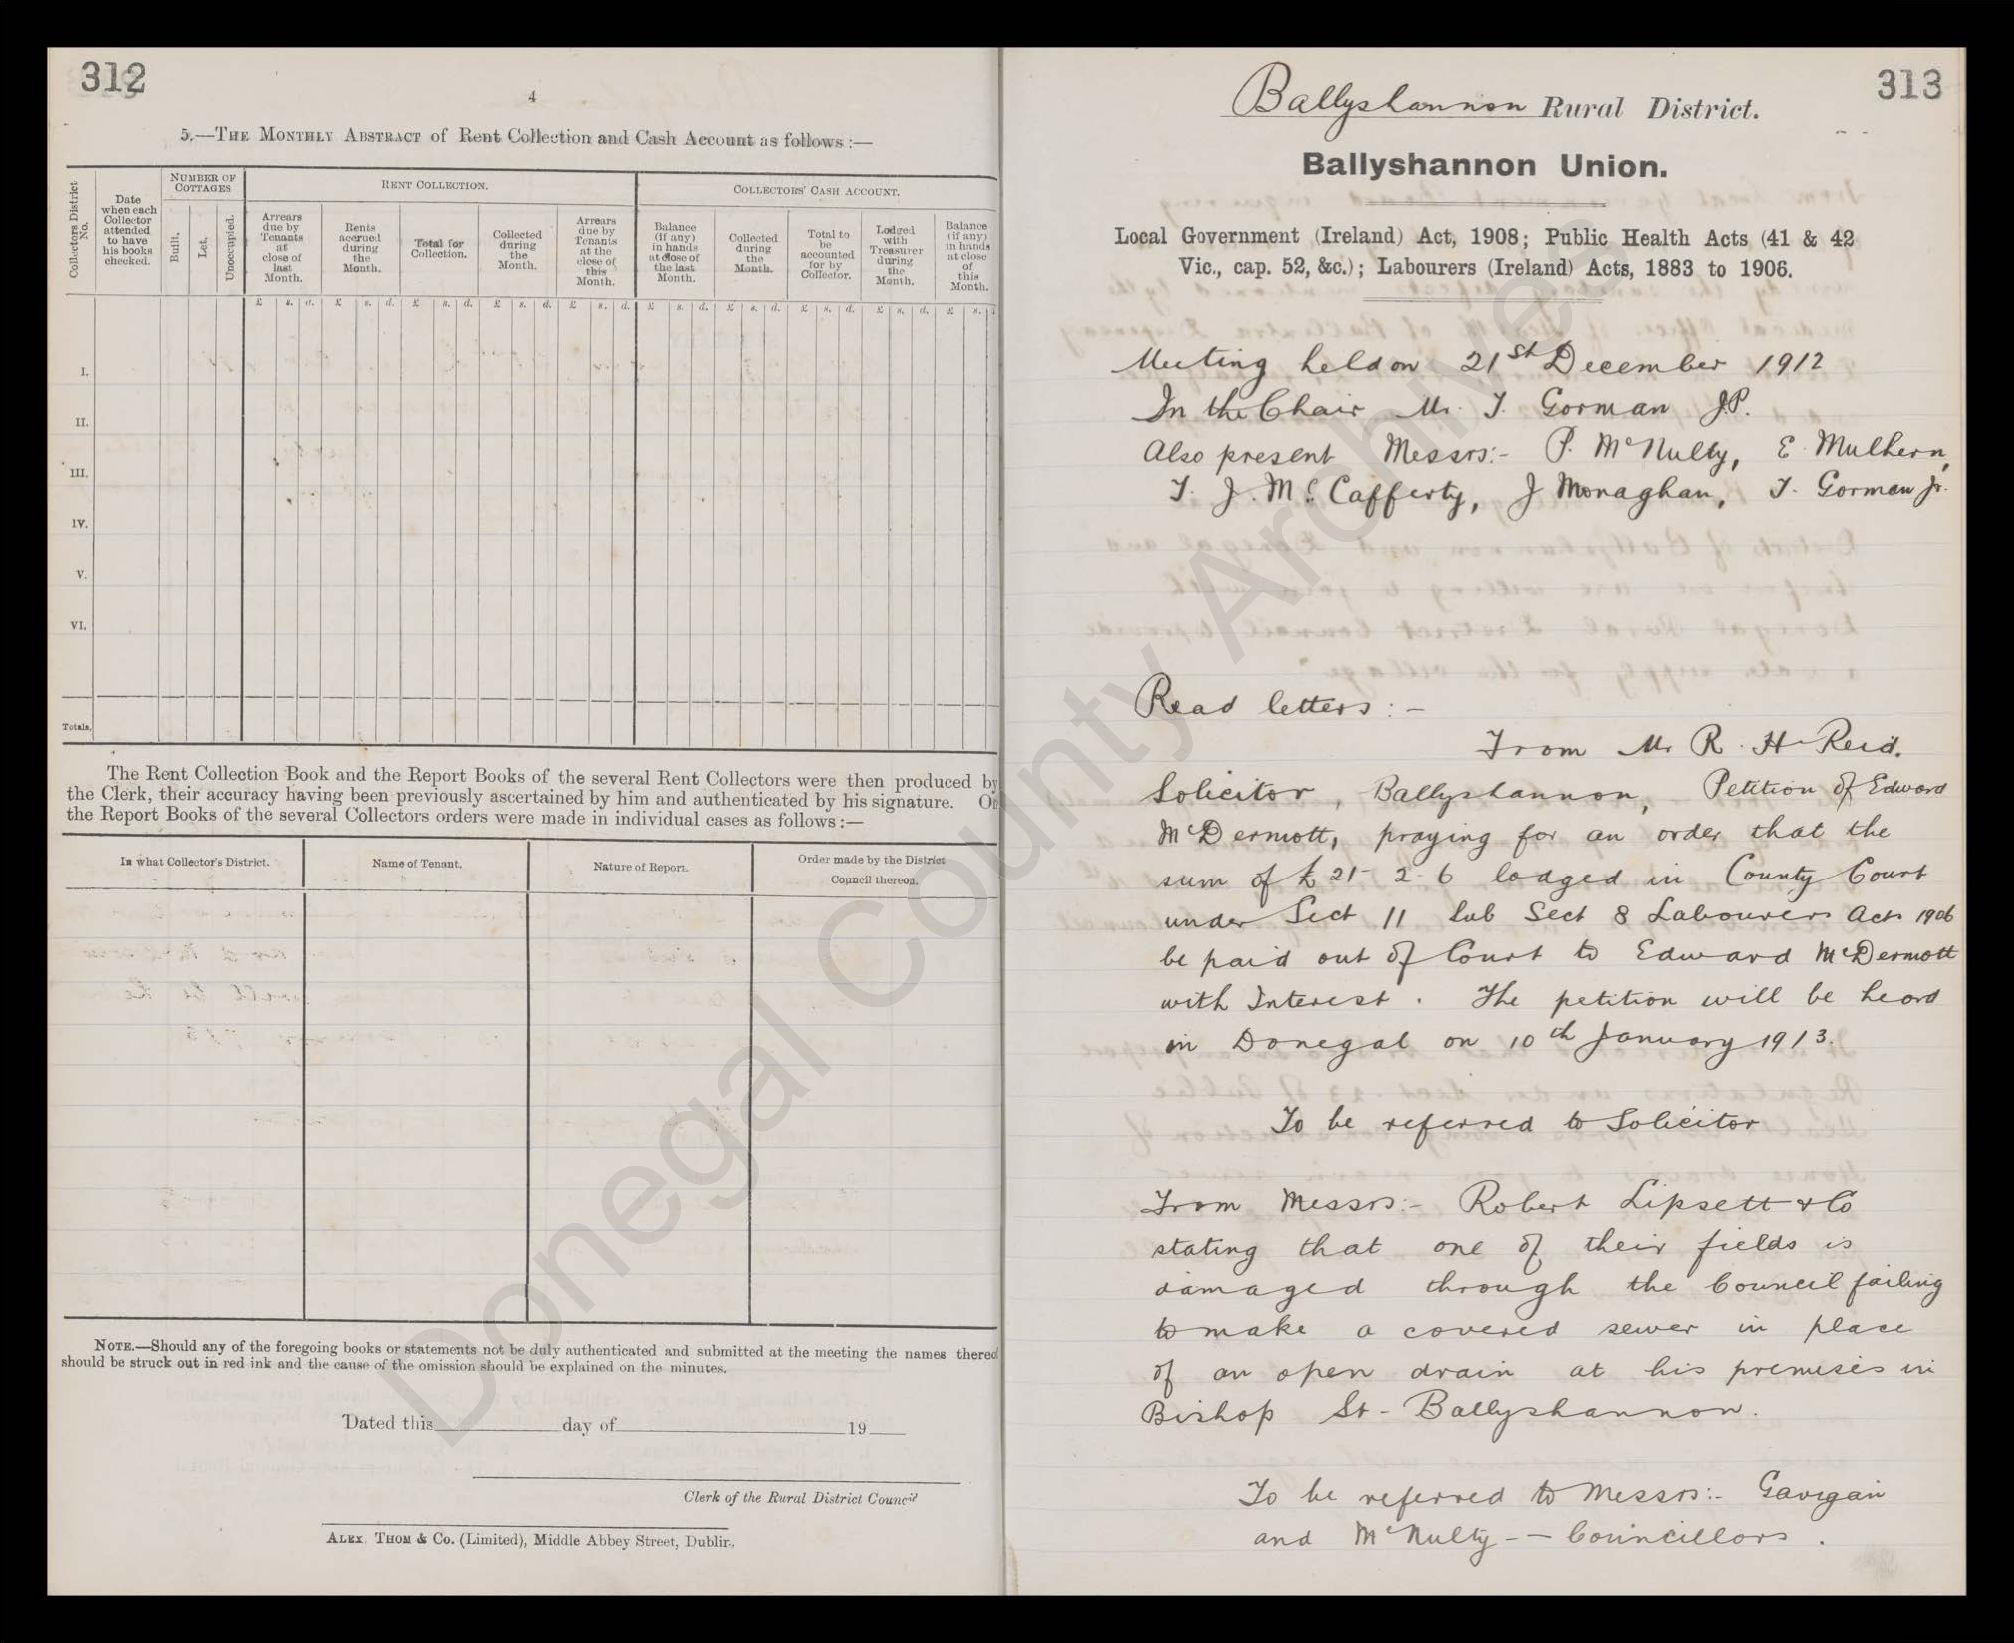 312
4
5.—THE MONTHLY ABSTRACT of Rent Collection and Cash Account as follows :—
Collectors District No.
Date when each Collector attended to have his books checked.
NUMBER OF COTTAGES
Built.
Let.
Unoccupied.
RENT COLLECTION.
Arrears due by Tenants at close of last Month.
Rents accrued during the Month.
Total for Collection.
Collected during the Month.
Arrears due by Tenants at the close of this Month.
COLLECTORS' CASH ACCOUNT.
Balance (if any) in hands at close of the last Month.
Collected during the Month.
Total to be accounted for by Collector.
Lodged with Treasurer during the Month.
Balance (if any) in hands at close of this Month.
£ s. d. £ s. d. £ s. d. £ s. d. £ s. d. £ s. d. £ s. d. £ s. d. £ s. d. £ s.
I.
II.
III.
IV.
V.
VI.
Totals,
The Rent Collection Book and the Report Books of the several Rent Collectors were then produced by
the Clerk, their accuracy having been previously ascertained by him and authenticated by his signature. On
the Report Books of the several Collectors orders were made in individual cases as follows:—
In what Collector's District.
Name of Tenant.
Nature of Report.
Order made by the District
Council thereon.
NOTE.—Should any of the foregoing books or statements not be duly authenticated and submitted at the meeting the names thereo
should be struck out in red ink and the cause of the omission should be explained on the minutes.
Dated this day of 19
Clerk of the Rural District Council
ALEX. THOM & Co. (Limited), Middle Abbey Street, Dublin.
313
Ballyshannon Rural District.
Ballyshannon Union.
Local Government (Ireland) Act, 1908; Public Health Acts (41 & 42
Vic., cap. 52, &c.); Labourers (Ireland) Acts, 1883 to 1906.
Meeting held on 21st December 1912
In the Chair Mr. T. Gorman J.P.
Also present Messrs:- P. McNulty, E Mulhern,
T. J. McCafferty, J Monaghan, T. Gorman Jr.
Read letters :-
From Mr R. H Reid.
Solicitor, Ballyshannon, Petition of Edward
McDermott, praying for an order that the
sum of £21-2-6 lodged in County Court
under Sect 11 Sub Sect 8 Labourers Acts 1906
be paid out of Court to Edward McDermott
with Interest. The petition will be heard
in Donegal on 10th January 1913.
To be referred to Solicitor
From Messrs:- Robert Lipsett & Co
stating that one of their fields is
damaged through the Council failing
to make a covered sewer in place
of an open drain at his premises in
Bishop St - Ballyshannon.
To be referred to Messrs:- Gavigan
and McNulty -- Councillors.
Donegal County Archives